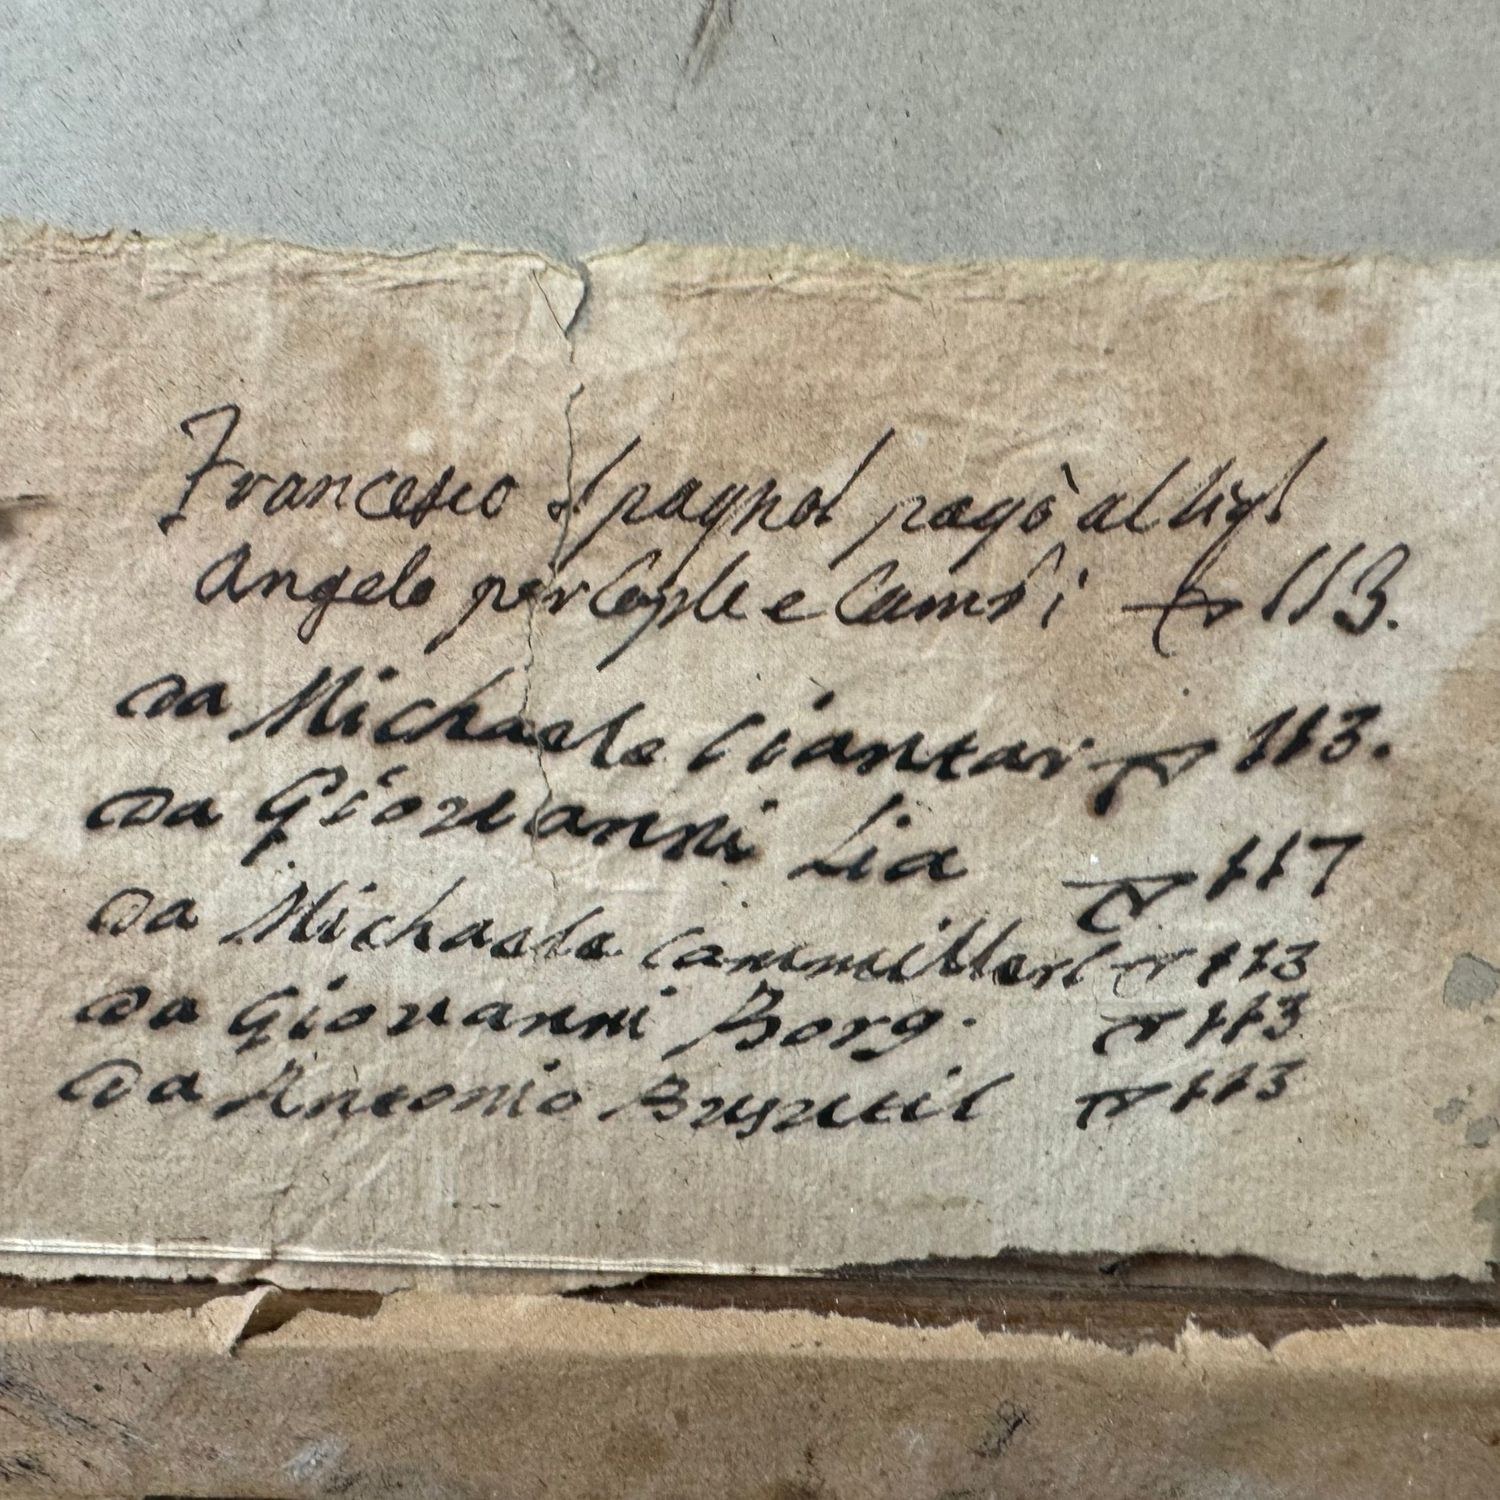 Francesco Spagnol pagò al Sigl
Angelo per Cople e Cambi 113.
Da Michaele Ciantar 113.
Da Giovanni Lia 117
Da Michaele Cammilleri 113
Da Giovanni Borg. 113
Da Antonio Busutil 113